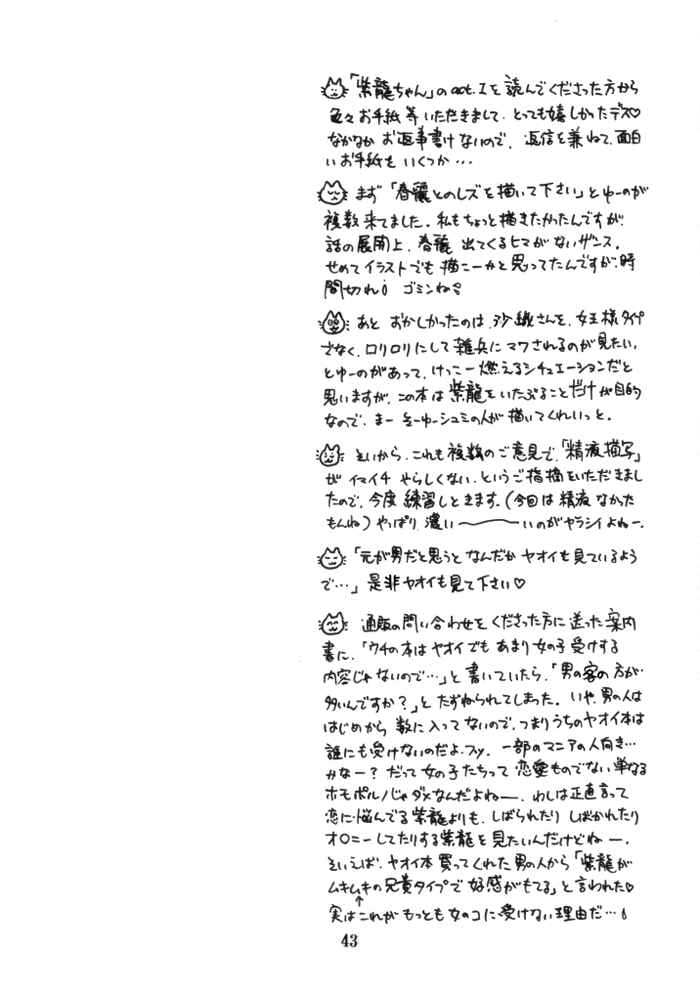 「紫龍ちゃん」のact.Iを読んでくださった方から
色々お手紙等いただきまして、とっても嬉しかったデス♡
なかなかお返事書けないので、返信を兼ねて、面白
いお手紙をいくつか…
まず「春麗とのレズを描いて下さい」とゆーのが
複数来てました。私もちょっと描きたかったんですが、
話の展開上、春麗出てくるヒマがないザンス。
せめてイラストでも描こーかと思ってたんですが、時
間切れ! ゴミンね
あとおかしかったのは、沙織さんを、女王様タイプ
でなく、ロリロリにして雑兵にマワされるのが見たい、
とゆーのがあって、けっこー燃えるシチュエーションだと
思いますが、この本は紫龍をいたぶることだけが目的
なので、まーそーゆーシュミの人が描いてくれいっと。
そいから、これも複数のご意見で、「精液描写」
がイマイチやらしくない、というご指摘をいただきまし
たので、今度練習しときます。(今回は精液なかった
もんね)やっぱり濃い〜〜いのがヤラシイよねー。
「元が男だと思うとなんだかヤオイも見ているよう
で…」是非ヤオイも見て下さい♡
通販の問い合わせをくださった方に送った案内
書に、「ウチの本はヤオイでもあまり女の子受けする
内容じゃないので…」と書いていたら、「男の客の方が
多いんですか?」とたずねられてしまった。いや、男の人は
はじめから数に入ってないので、つまりうちのヤオイ本は
誰にも受けないのだよ、フッ。一部のマニアの人向き…
かなー?だって女の子たちって恋愛ものでない単なる
ホモポルノじゃダメなんだよねー。わしは正直言って
恋に悩んでる紫龍よりも、しばられたりしばかれたり
オ○ニーしてたりする紫龍を見たいんだけどねー。
そいえば、ヤオイ本買ってくれた男の人から「紫龍が
ムキムキの兄貴タイプで好感がもてる」と言われた♡
↑
実はこれがもっとも女のコに受けない理由だ…
43